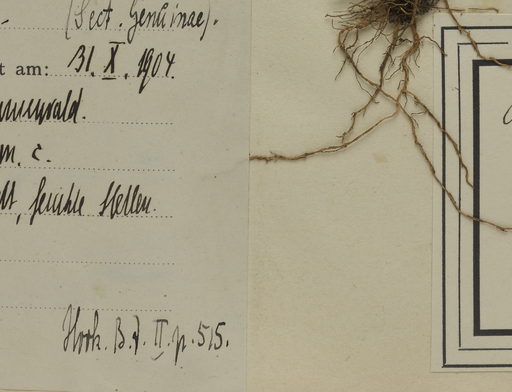 (Sect. Genuinae).
t am: 31. X. 1904.
m. c.
feuchte Stellen.
Hook. B. J. II. p. 515.